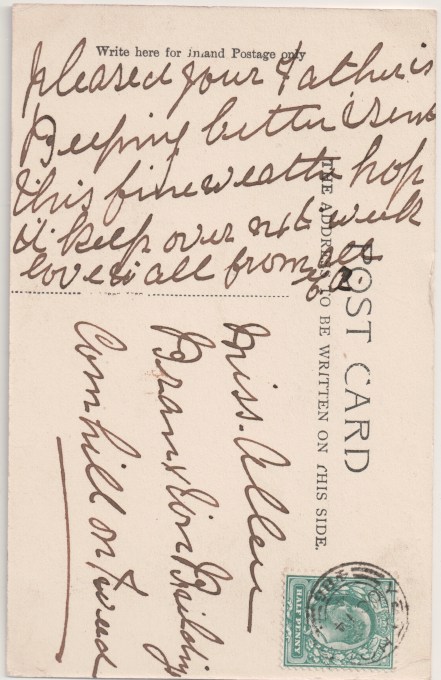 Write here for Inland Postage only
pleased your Father is
Keeping better
this fine weather hop
it keep over next week
love to all from
POST CARD
THE ADDRESS TO BE WRITTEN ON THIS SIDE.
Miss. Allen
Branxton Buildings
Cornhill on Tweed
HALF PENNY